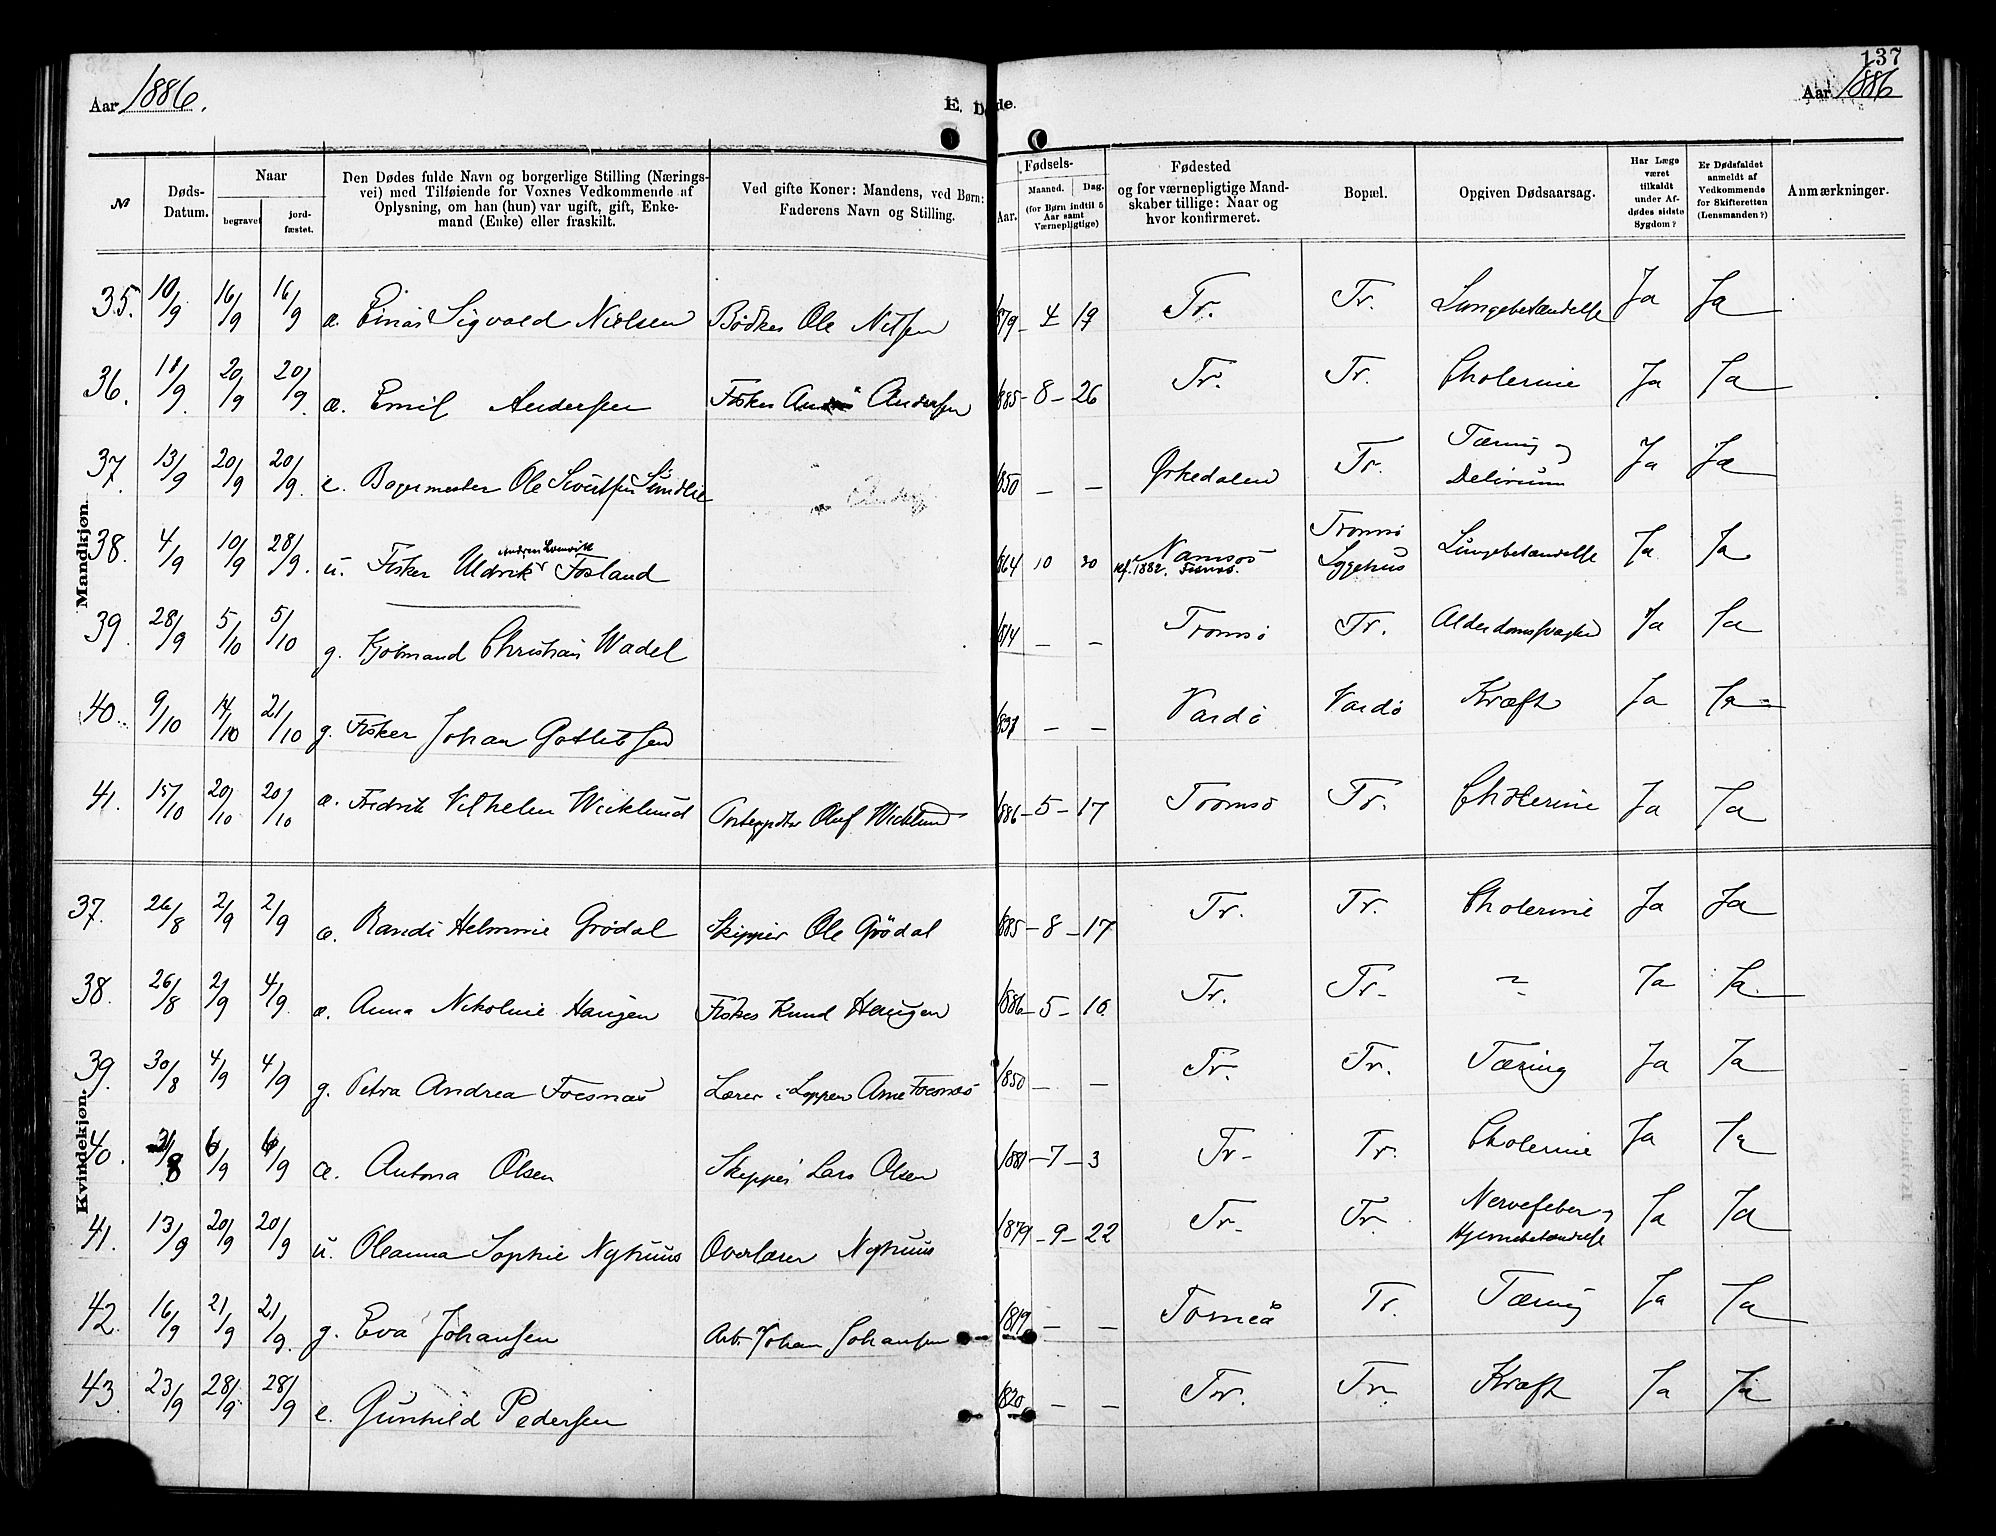 137
Aar 1886. E. Døde. Aar 1886
№ Døds-Datum. Naar begravet jordfæstet. Den Dødes fulde Navn og borgerlige Stilling (Næringsvei) med Tilføiende for Voxnes Vedkommende af Oplysning, om han (hun) var ugift, gift, Enkemand (Enke) eller fraskilt. Ved gifte Koner: Mandens, ved Børn: Faderens Navn og Stilling. Fødsels- Aar. Maaned. Dag. (for Børn indtil 5 Aar samt Værnepligtige) Fødested og for værnepligtige Mandskaber tillige: Naar og hvor konfirmeret. Bopæl. Opgiven Dødsaarsag. Har Læge været tilkaldt under Afdødes sidste Sygdom? Er Dødsfaldet anmeldt af Vedkommende for Skifteretten (Lensmanden?) Anmærkninger.
Mandkjøn.
35. 10/9 16/9 16/9 æ. Einar Sigvald Nielsen Bødker Ole Nilsen 1879 - 4 - 19 Tr. Tr. Lungebetændelse Ja Ja
36. 11/9 20/9 20/9. æ. Emil Andersen Fisker Andersen 1885 - 8 - 26 Tr. Tr. Cholerine Ja Ja
37. 13/9 20/9 20/9. e. Bagermester Ole Sivertsen Lindlie 1850 — — Ørkedalen Tr. Tæring og Delirium Ja Ja
38. 4/9 10/9 28/9. u. Fisker Uldrik Andreas Fosland 1864 10 20 Namsos kf. 1882. Tromsø Sygehus Lungebetændelse Ja Ja
39. 28/9 5/10 5/10 g. Kjøbmand Christian Wadel 1814 — — Tromsø Tr. Alderdomssvaghed Ja Ja
40. 9/10 14/10 21/10 g. Fisker Johan Gotlibsen — — Vardø Vardø Kræft Ja Ja
41. 15/10 20/10 20/10 æ. Fredrik Vilhelm Wicklund Oluf Wicklund 1886 - 5 - 17 Tromsø Tr. Cholerine Ja Ja
Kvindekjøn.
37. 26/8 2/9 2/9 æ. Randi Helmine Grødal Skipper Ole Grödal 1885 - 8 - 17 Tr. Tr. Cholerine Ja Ja
38. 26/8 2/9 4/9. æ. Anna Nikoline Haugen Fisker Knud Haugen 1886 - 5 - 16 Tr. Tr. — " — Ja Ja.
39. 30/8 4/9 4/9 g. Petra Andrea Foesnæs Lærer i Loppen Arne Foesnæs 1850 — — Tr. Tr. Tæring Ja Ja
40. 31/8 6/9 6/9 æ. Antona Olsen Skipper Lars Olsen 1881 - 7 - 3 Tr. Tr. Cholerine Ja Ja
41. 13/9 20/9 20/9 u. Oleanna Sophie Nyhuus Overlærer Nyhuus 1879 - 9 - 22 Tr. Tr. Nervefeber og Hjernebetændelse Ja Ja
42. 16/9 21/9 21/9. g. Eva Johansen Arb. Johan Johansen 1819 — — Torneå Tr. Tæring Ja Ja
43. 23/9 28/9 28/9 e. Gunhild Pedersen 1820 — — Tr. Tr. Kræft Ja Ja